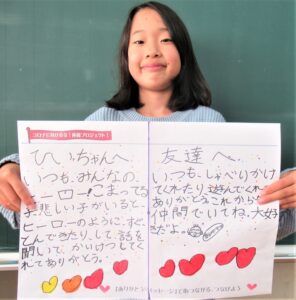 コロナに負けるな！保護プロジェクト！
ひぃちゃんへ
いつも、みんなの、
ヒーロー！こまってる
子、悲しい子がいると、
ヒーローのように、すぐ
とんできたり、して、話を
聞いて、かいけつしてく
れてありがとう。
友達へ
いつも、しゃべりかけ
てくれたり、遊んでくれて
ありがとう。これからも
仲間でいてね。大好
きだよ。
「ありがとうメッセージ」で心つながる、つながろう